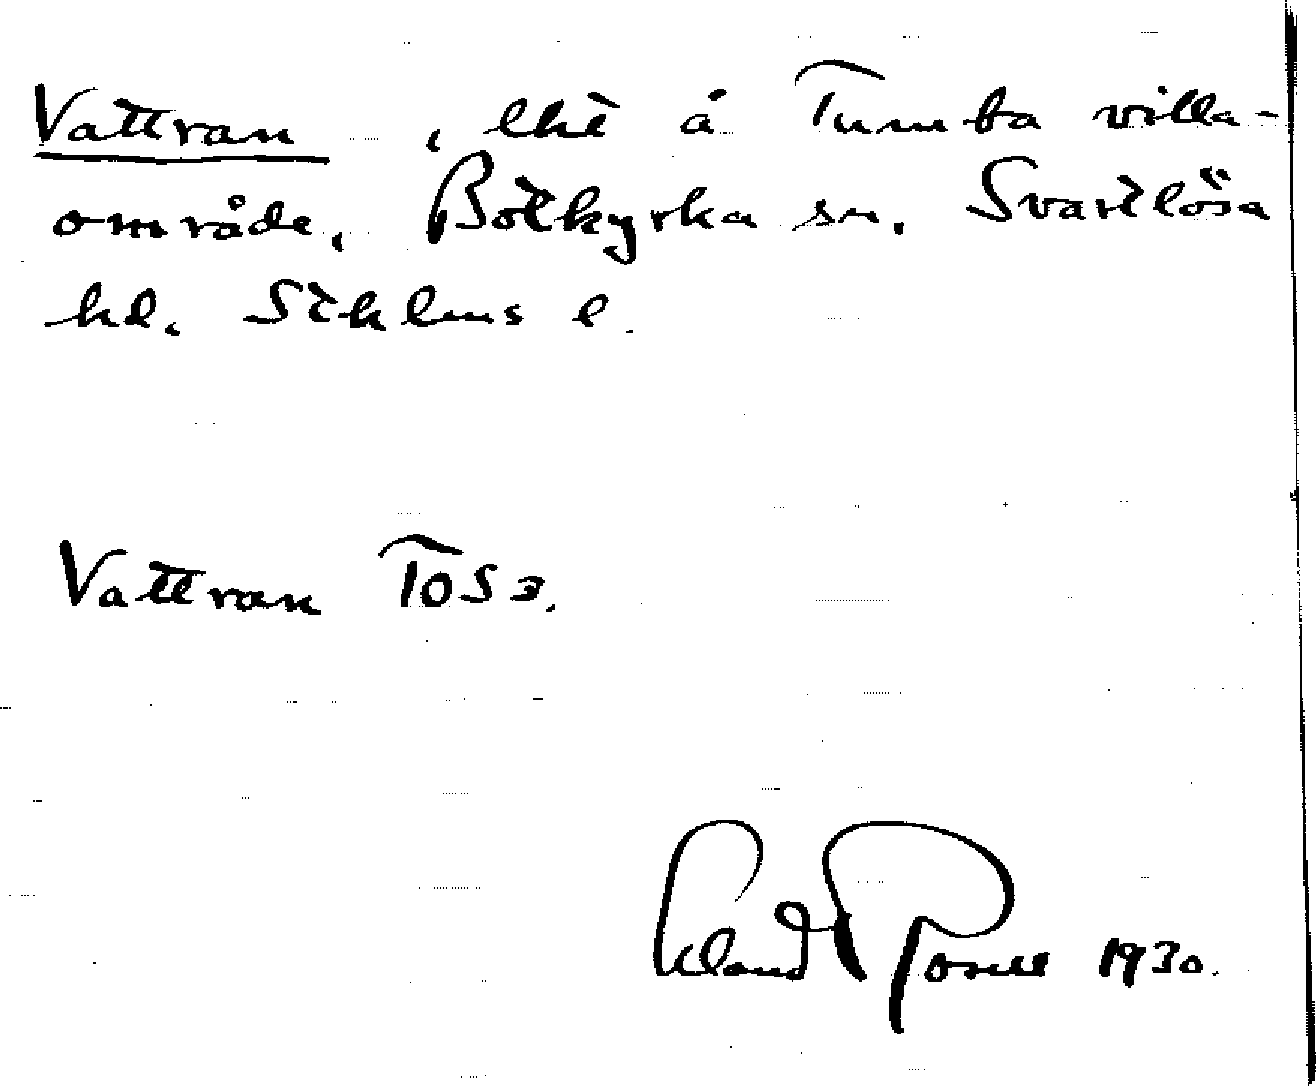 Vattran , lht å Tumba villa-
område, Botkyrka sn. Svartlösa
hd. Sthlms l.
Vattran TOS 3.
Rosell 1930.